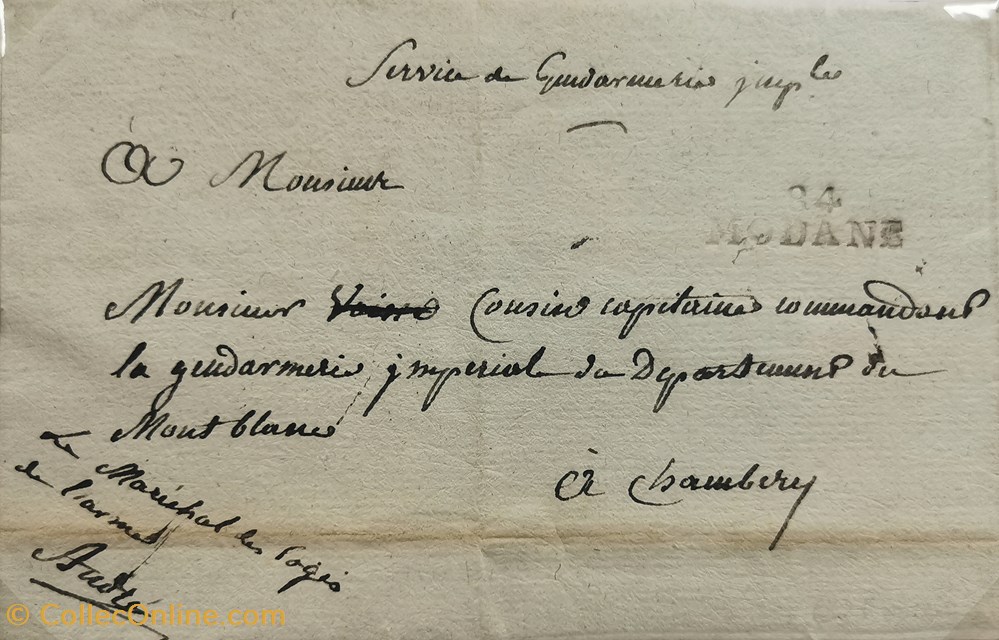 Service de Gendarmerie jmp^le
A Monsieur
84
MODANE
Monsieur Cousin capitaine commandant
la gendarmerie jmperiale du Departement du
Montblanc
à Chambery
Le Maréchal des logis
de l'arme
André
© CollecOnline.com